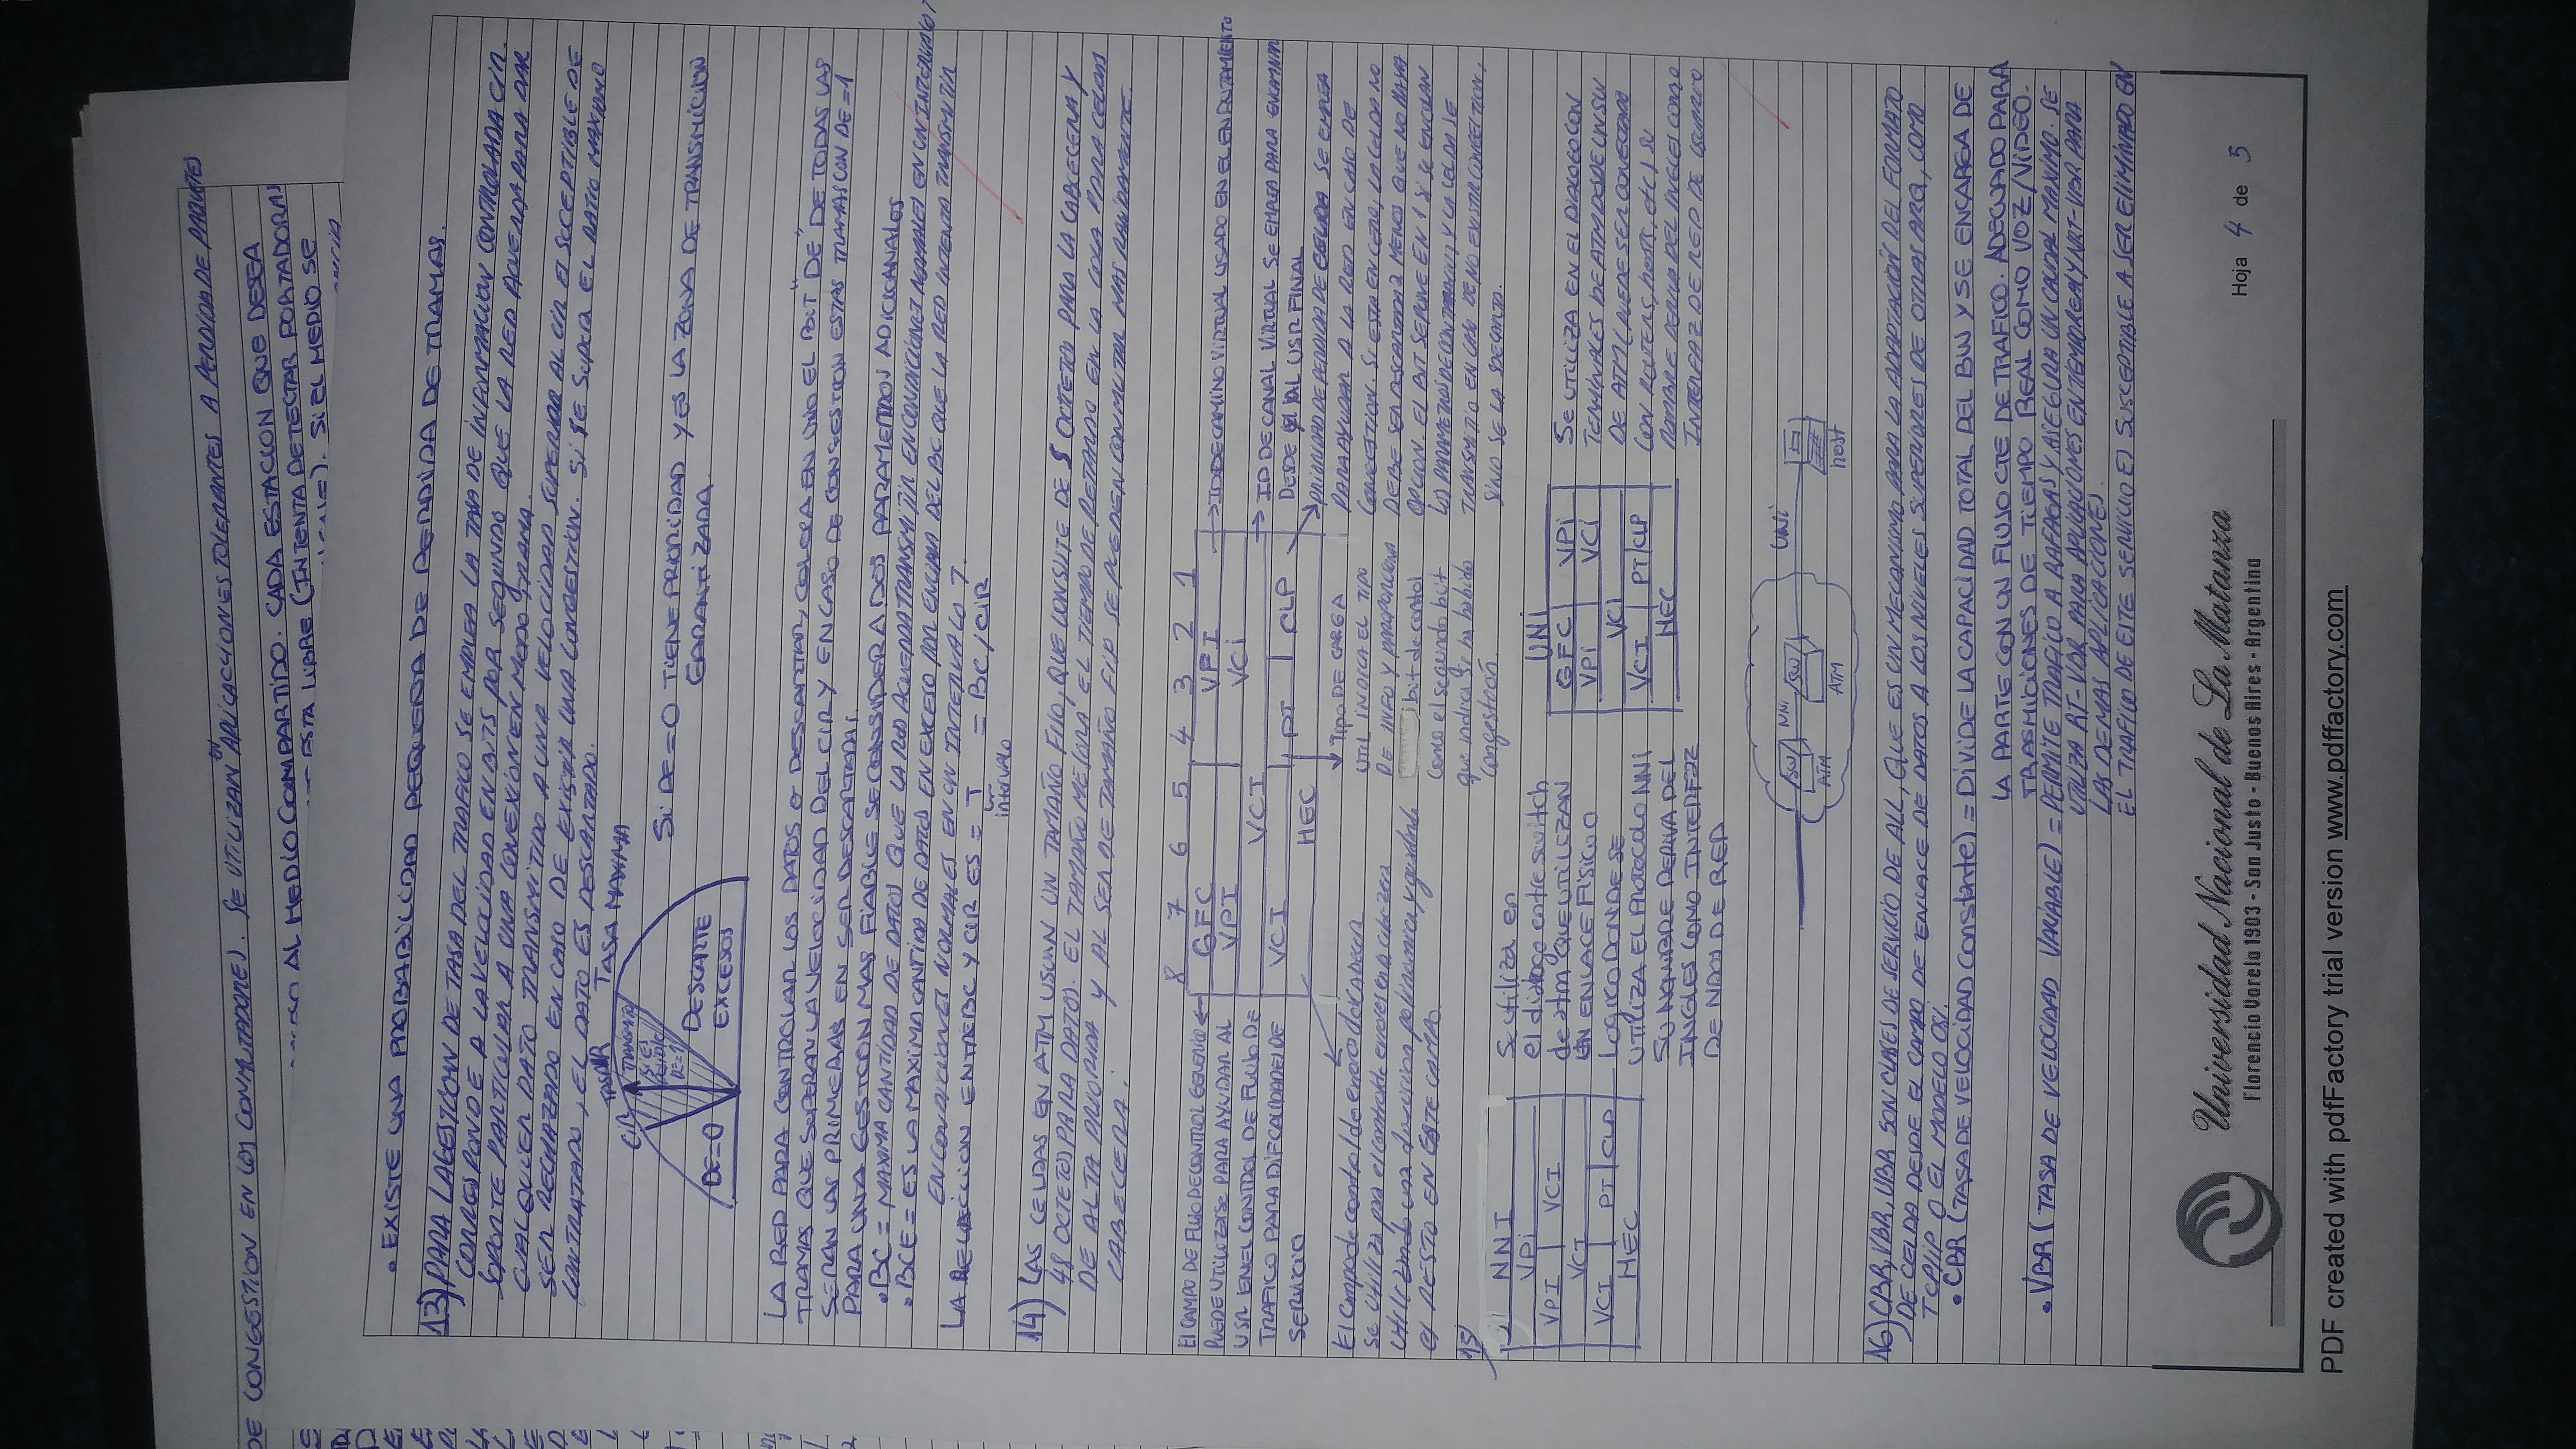 DE CONGESTION EN LOS CONMUTADORES. SE UTILIZAN EN APLICACIONES TOLERANTES A PERDIDA DE PAQUETES
AL MEDIO COMPARTIDO. CADA ESTACION QUE DESEA
ESTA LIBRE (INTENTA DETECTAR PORTADORAS
SI EL MEDIO SE
• EXISTE UNA PROBABILIDAD PEQUEÑA DE PERDIDA DE TRAMAS.
13) PARA LA GESTION DE TASA DEL TRAFICO SE EMPLEA LA TASA DE INFORMACION CONTROLADA CIR.
CORRESPONDE A LA VELOCIDAD EN BITS POR SEGUNDO QUE LA RED ACUERDA PARA DAR
SOPORTE PARTICULAR A UNA CONEXION EN MODO TRAMA.
CUALQUIER DATO TRANSMITIDO A UNA VELOCIDAD SUPERIOR AL CIR ES SUCEPTIBLE DE
SER RECHAZADO EN CASO DE EXISTIR UNA CONGESTION. SI SE SUPERA EL RATIO MAXIMO
CONTRATADO, EL DATO ES DESCARTADO.
CIR TASA TASA MAXIMA
TRANSMITIR
SI ES
POSIBLE
DE=1
DE=0
DESCARTE
EXCESOS
SI DE=0 TIENE PRIORIDAD Y ES LA ZONA DE TRANSMICION
GARANTIZADA.
LA RED PARA CONTROLAR LOS DATOS A DESCARTAR, COLOCA EN UNO EL BIT "DE" DE TODAS LAS
TRAMAS QUE SUPERAN LA VELOCIDAD DEL CIR Y EN CASO DE CONGESTION ESTAS TRAMAS CON DE=1
SERAN LAS PRIMERAS EN SER DESCARTADAS.
PARA UNA GESTION MAS FIABLE SE CONSIDERA DOS PARAMETROS ADICIONALES
• BC = MAXIMA CANTIDAD DE DATOS QUE LA RED ACUERDA TRANSMITIR EN CONDICIONES NORMALES EN UN INTERVALO T
• BCE = ES LA MAXIMA CANTIDA DE DATOS EN EXCESO POR ENCIMA DEL BC QUE LA RED INTENTA TRANSMITIR
EN CONDICIONES NORMALES EN UN INTERVALO T.
LA RELACCION ENTRE BC Y CIR ES = T = BC/CIR
intervalo
14) LAS CELDAS EN ATM USAN UN TAMAÑO FIJO, QUE CONSISTE DE 5 OCTETOS PARA LA CABECERA Y
48 OCTETOS PARA DATOS. EL TAMAÑO MEJORA EL TIEMPO DE RETARDO EN LA COLA PARA CELDAS
DE ALTA PRIORIDA Y AL SER DE TAMAÑO FIJO SE PUEDEN CONMUTAR MAS RAPIDAMENTE.
CABECERA:
8 7 6 5 4 3 2 1
GFC VPI
VPI VCI
VCI
VCI PT CLP
HEC
El CAMPO DE FLUJO DE CONTROL GENERICO
PUEDE UTILIZARSE PARA AYUDAR AL
USR EN EL CONTROL DE FLUJO DE
TRAFICO PARA DIF CALIDADES DE
SERVICIO
ID DE CAMINO VIRTUAL USADO EN EL ENRUTAMIENTO
ID DE CANAL VIRTUAL SE EMPLEA PARA ENCAMINAR
DESDE Y AL USR FINAL
PRIORIDAD DE PERDIDA DE CELDA SE EMPLEA
PARA AYUDAR A LA RED EN CASO DE
CONGESTION. SI ESTA EN CERO, LA CELDA NO
DEBE SER DESCARTADA A MENOS QUE NO HAYA
OPCION. EL BIT SE PONE EN 1 SI SE
LOS PARAMETROS DE Y LA CELDA SE
TRANSMITIO EN CASO DE NO EXISTIR CONGESTION,
SINO SE LA DESCARTA.
TIPO DE CARGA
UTIL INDICA EL TIPO
DE INFO Y PROPORCIONA
bit de contol
como el segundo bit
que indica si ha habido
congestión.
El campo de control de errores de CABECERA
se utiliza para el control de errores en la cabezera
utilizando una division polinomica y guardando
el RESTO EN ESTE CAMPO.
15)
NNI
VPI
VPI VCI
VCI
VCI PT CLP
HEC
Se utiliza en
el dialogo entre switch
de atm QUE UTILIZAN
UN ENLACE FISICO O
LOGICO DONDE SE
UTILIZA EL PROTOCOLO NNI
SU NOMBRE DERIVA DEL
INGLES COMO INTERFAZ
DE NODOS DE RED
UNI
GFC VPI
VPI VCI
VCI
VCI PT/CLP
HEC
SE UTILIZA EN EL DIALOGO CON
TERMINALES DE ATM DESDE UN SW
DE ATM (PUEDE SER CONECTADO
CON ROUTERS, hosts, etc) SU
NOMBRE DERIVA DEL INGLES COMO
INTERFAZ DE RED DE USUARIO
SW NNI SW UNI
ATM ATM host
16) CBR, VBR, UBR SON CLASES DE SERVICIO DE ALL, QUE ES UN MECANISMO PARA LA ADAPTACIÓN DEL FORMATO
DE CELDA DESDE EL CAMPO DE ENLACE DE DATOS A LOS NIVELES SUPERIORES DE OTRAS ARQ, COMO
TCP/IP O EL MODELO OSI.
• CBR (TASA DE VELOCIDAD Constante) = DIVIDE LA CAPACIDAD TOTAL DEL BW Y SE ENCARGA DE
LA PARTE CON UN FLUJO CTE DE TRAFICO. ADECUADO PARA
TRASMICIONES DE TIEMPO REAL COMO VOZ/VIDEO.
• VBR (TASA DE VELOCIDAD VARIABLE) = PERMITE TRAFICO A RAFAGAS Y ASEGURA UN CAUDAL MAXIMO. SE
UTILIZA RT-VBR PARA APLICACIONES EN TIEMPO REAL Y NRT-VBR PARA
LAS DEMAS APLICACIONES.
EL TRAFICO DE ESTE SERVICIO ES SUSCEPTIBLE A SER ELIMINADO EN
Universidad Nacional de La Matanza
Florencio Varela 1903 - San Justo - Buenos Aires - Argentina
Hoja 4 de 5
PDF created with pdfFactory trial version www.pdffactory.com